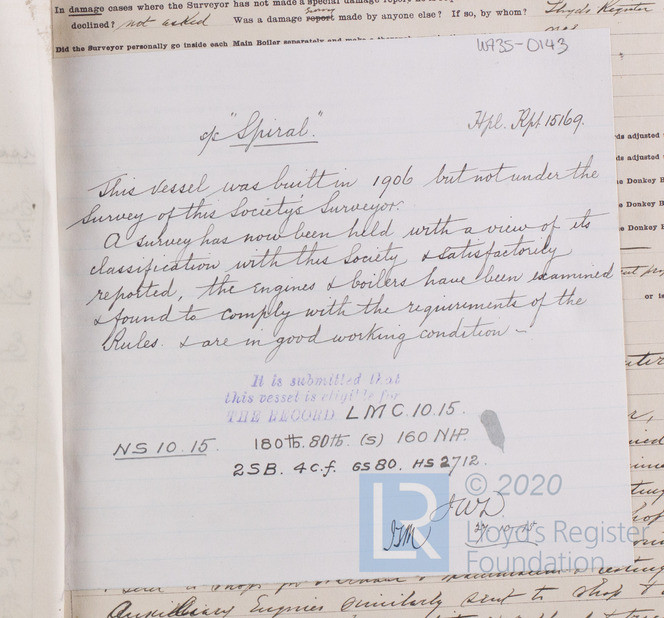 In damage cases where the Surveyor has not made a special damage
declined? not asked Was a damage report made by anyone else? If so, by whom? Lloyds Register
Did the Surveyor personally go inside each Main Boiler separately and make a
W735-0143
s/s "Spiral." Hpl. Rpt. 15169.
This vessel was built in 1906 but not under the
Survey of this Society's Surveyor.
A survey has now been held with a view of its
classification with this Society & satisfactorily
reported, the engines & boilers have been examined
& found to comply with the requirements of the
Rules. & are in good working condition ~
It is submitted that
this vessel is eligible for
THE RECORD LMC. 10.15.
NS 10.15. 180 lb. 80 lb. (S) 160 NHP.
2SB. 4c.f. GS 80. HS 2712.
JWD
LR © 2020
Lloyd's Register
Foundation
ds adjusted
ds adjusted
e Donkey B
e Donkey B
or is
Auxiliary Engines similarly sent to shop